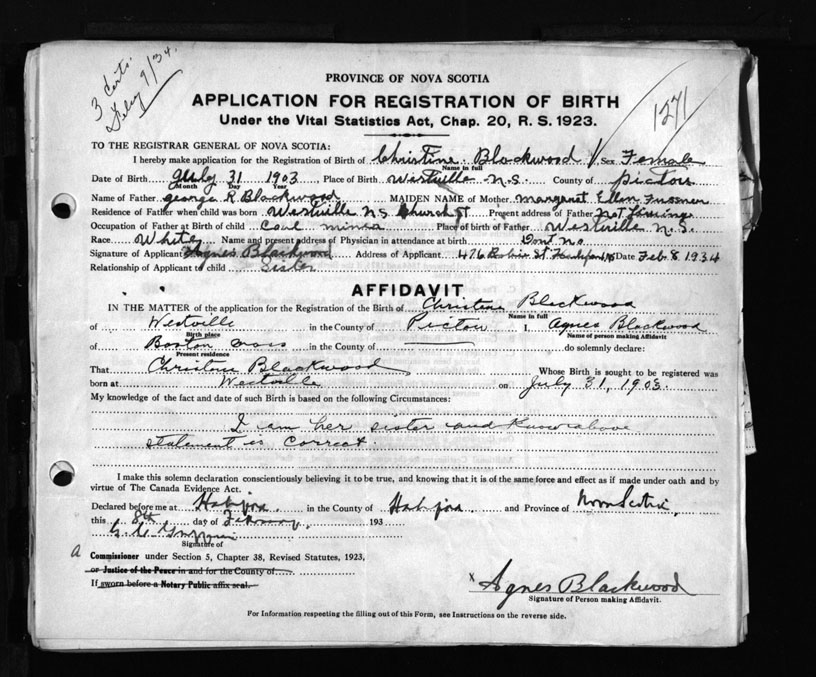 3 Certs.
9/34.
1271
PROVINCE OF NOVA SCOTIA
APPLICATION FOR REGISTRATION OF BIRTH
Under the Vital Statistics Act, Chap. 20, R. S. 1923.
TO THE REGISTRAR GENERAL OF NOVA SCOTIA:
I hereby make application for the Registration of Birth of Christine Blackwood Sex Female
Name in full
Date of Birth July 31 1903 Place of Birth Westville N.S. County of Pictou
Month Day Year
Name of Father George R. Blackwood MAIDEN NAME of Mother Margaret Ellen
Residence of Father when child was born Westville N S Church St Present address of Father Not Living
Occupation of Father at Birth of child Coal Place of birth of Father Westville N.S.
Race White Name and present address of Physician in attendance at birth Dont no
Signature of Applicant Agnes Blackwood Address of Applicant 476 St Date Feb. 8 1934
Relationship of Applicant to child Sister
AFFIDAVIT
IN THE MATTER of the application for the Registration of the Birth of Christine Blackwood
Name in full
of Westville in the County of Pictou I, Agnes Blackwood
Birth place Name of person making Affidavit
of Boston Mass in the County of do solemnly declare:
Present residence
That Christine Blackwood Whose Birth is sought to be registered was
born at Westville on July 31, 1903.
My knowledge of the fact and date of such Birth is based on the following Circumstances:
I am her sister and know above
statement is correct.
I make this solemn declaration conscientiously believing it to be true, and knowing that it is of the same force and effect as if made under oath and by
virtue of The Canada Evidence Act.
Declared before me at in the County of and Province of Nova Scotia,
this 8th day of February, 193
Signature of
a Commissioner under Section 5, Chapter 38, Revised Statutes, 1923,
or Justice of the Peace in and for the County of
If sworn before a Notary Public affix seal.
x Agnes Blackwood
Signature of Person making Affidavit.
For Information respecting the filling out of this Form, see Instructions on the reverse side.